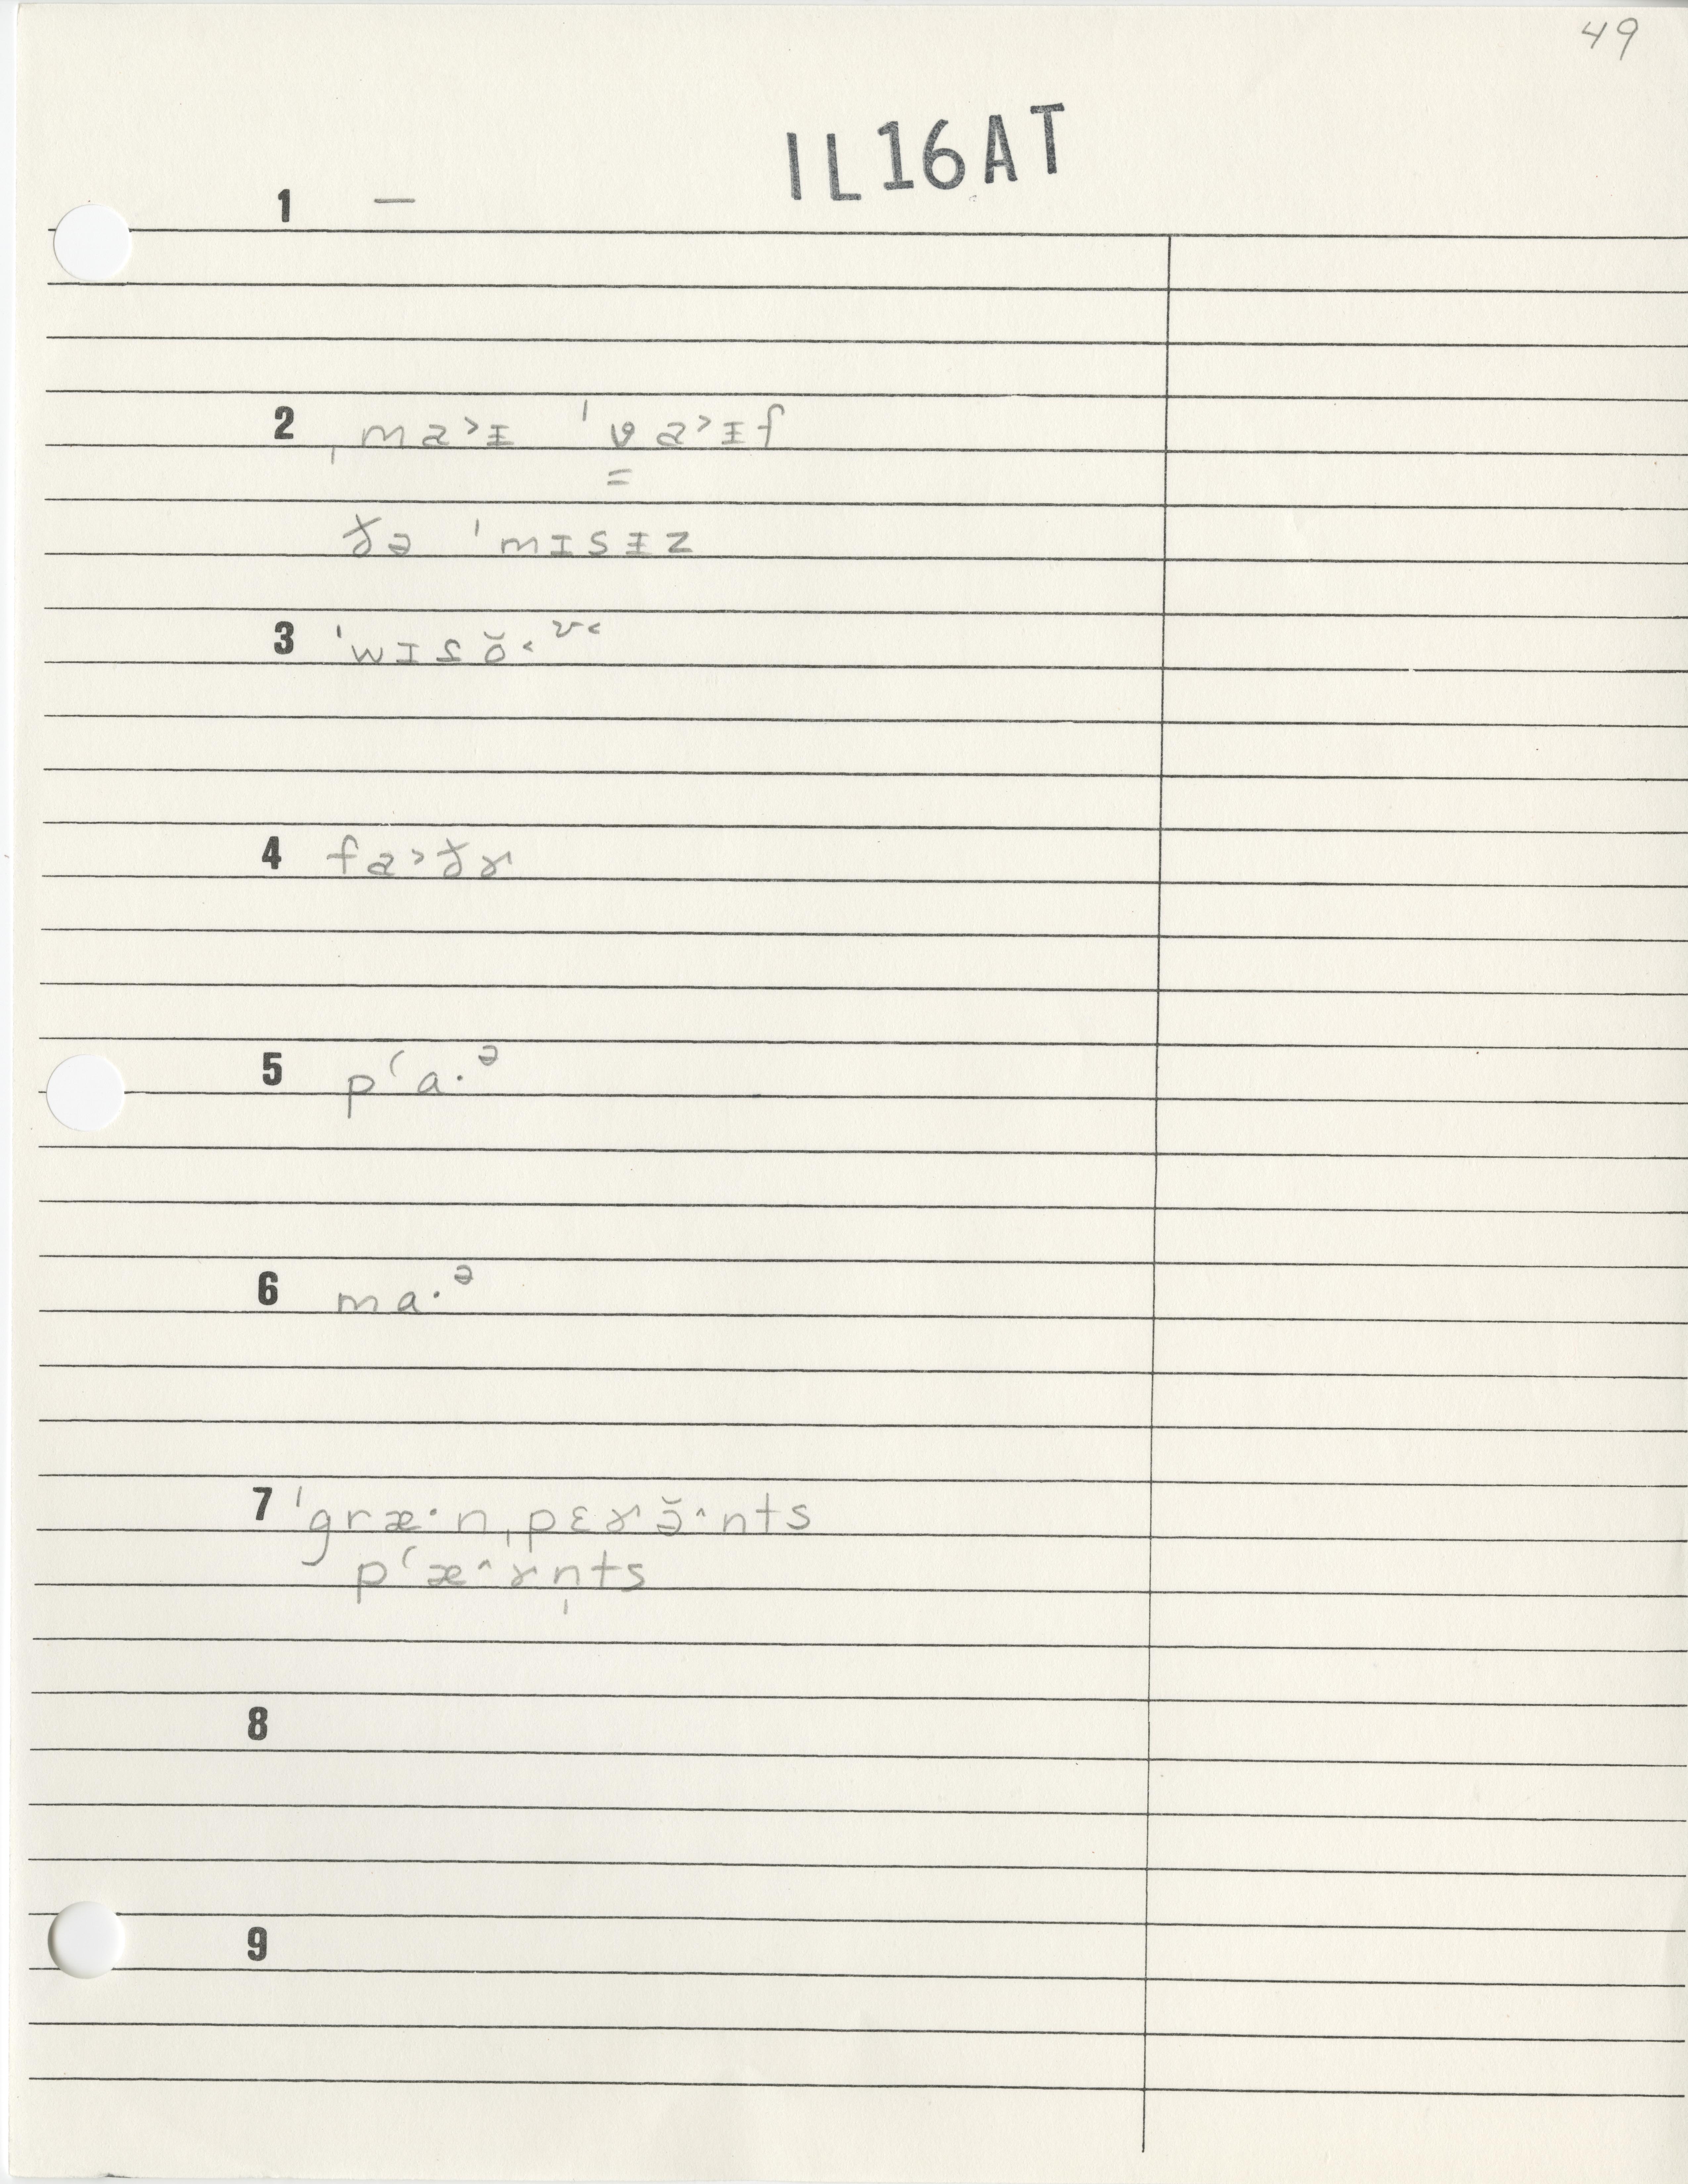 49
IL16AT
1 —
2 ˌma˃ɪ ˈʋa˃ɪf
ðə ˈmɪsɨz
3 ˈwɪɾŏ˂ʊ˂
4 fa˃ðɚ
5 pʻa·ᵊ
6 ma·ᵊ
7 ˈgræ·nˌpɛɚə̆^nts
pʻæ^ɚn̩ts
8
9